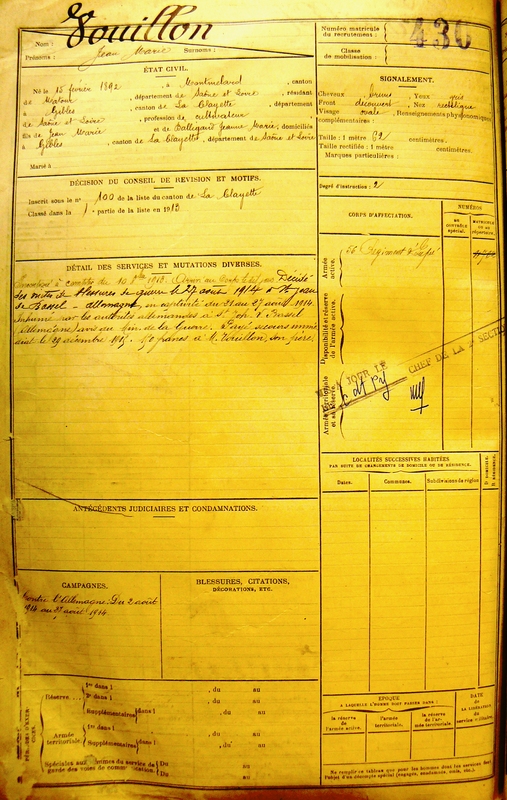 Vouillon
Nom :
Prénoms : Jean Marie Surnoms :
Numéro matricule
du recrutement :
436
Classe
de mobilisation :
ÉTAT CIVIL.
Né le 15 février 1892, à Montmelard, canton
de Matour, département de Saône et Loire, résidant
à Gibles, canton de La Clayette, département
de Saône et Loire, profession de cultivateur
fils de Jean Marie et de Jeanne Marie, domiciliés
à Gibles, canton de La Clayette, département de Saône et Loire
Marié à
SIGNALEMENT.
Cheveux bruns Yeux gris
Front découvert, Nez rectiligne
Visage ovale, Renseignements physionomiques
complémentaires :
Taille : 1 mètre 62 centimètres.
Taille rectifiée : 1 mètre centimètres.
Marques particulières :
DÉCISION DU CONSEIL DE REVISION ET MOTIFS.
Inscrit sous le n° 100 de la liste du canton de La Clayette
Classé dans la 1 partie de la liste en 1913
Degré d'instruction : 2
CORPS D'AFFECTATION.
NUMÉROS
AU CONTRÔLE SPÉCIAL.
MATRICULE OU AU RÉPERTOIRE.
Armée active.
56 Régiment d'Inf
Disponibilité et réserve de l'armée active.
Armée territoriale et sa réserve.
A JOUR LE
CHEF DE LA 2 SECTION
DÉTAIL DES SERVICES ET MUTATIONS DIVERSES.
Incorporé à compter du 10 1913. Arrivé au corps le dit jour Décédé
des suites de blessures de guerre le 27 août 1914 à St Jean
de Bassel - allemagne, en captivité du 21 au 27 août 1914.
Inhumé par les autorités allemandes à St Joh. V. Bassel
Allemagne, avis du Min de la Guerre. Payé secours immé
diat le 29 décembre 1915. 150 francs à M. Vouillon, son père.
LOCALITÉS SUCCESSIVES HABITÉES
PAR SUITE DE CHANGEMENTS DE DOMICILE OU DE RÉSIDENCE.
Dates.
Communes.
Subdivisions de région
D. DOMICILE.
R. RÉSIDENCE.
ANTÉCÉDENTS JUDICIAIRES ET CONDAMNATIONS.
CAMPAGNES.
Contre l'Allemagne : Du 2 août
1914 au 27 août 1914.
BLESSURES, CITATIONS,
DÉCORATIONS, ETC.
Réserve
1re dans l , du au
2e dans l , du au
Supplémentaires dans l , du au
Armée
territoriale.
1re dans l , du au
Supplémentaires dans l , du au
Spéciales aux hommes du service de
garde des voies de communication.
Du au
Du au
ÉPOQUE
A LAQUELLE L'HOMME DOIT PASSER DANS :
la réserve
de l'armée active.
l'armée
territoriale.
la réserve
de l'armée
territoriale.
DATE
DE LA LIBÉRATION
du service militaire.
Ne remplir ce tableau que pour les hommes dont les services